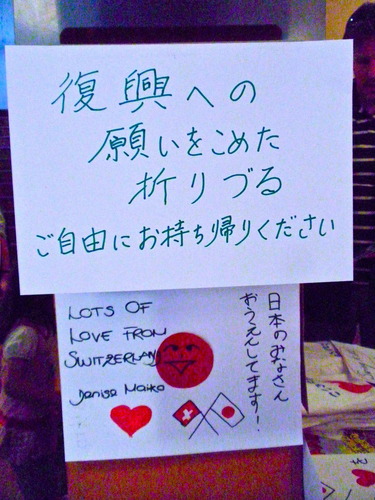 復興への
願いをこめた
折りづる
ご自由にお持ち帰りください
LOTS OF
LOVE FROM
SWITZERLAND
Denise Maiko
日本のみなさん
おうえんしてます!